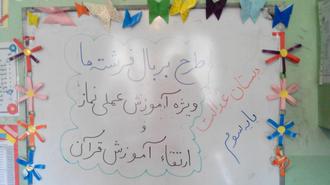 طرح بر بال فرشته ها
ویژه آموزش عملی نماز
و
ارتقاء آموزش قرآن
دبستان عدالت
پایه سوم